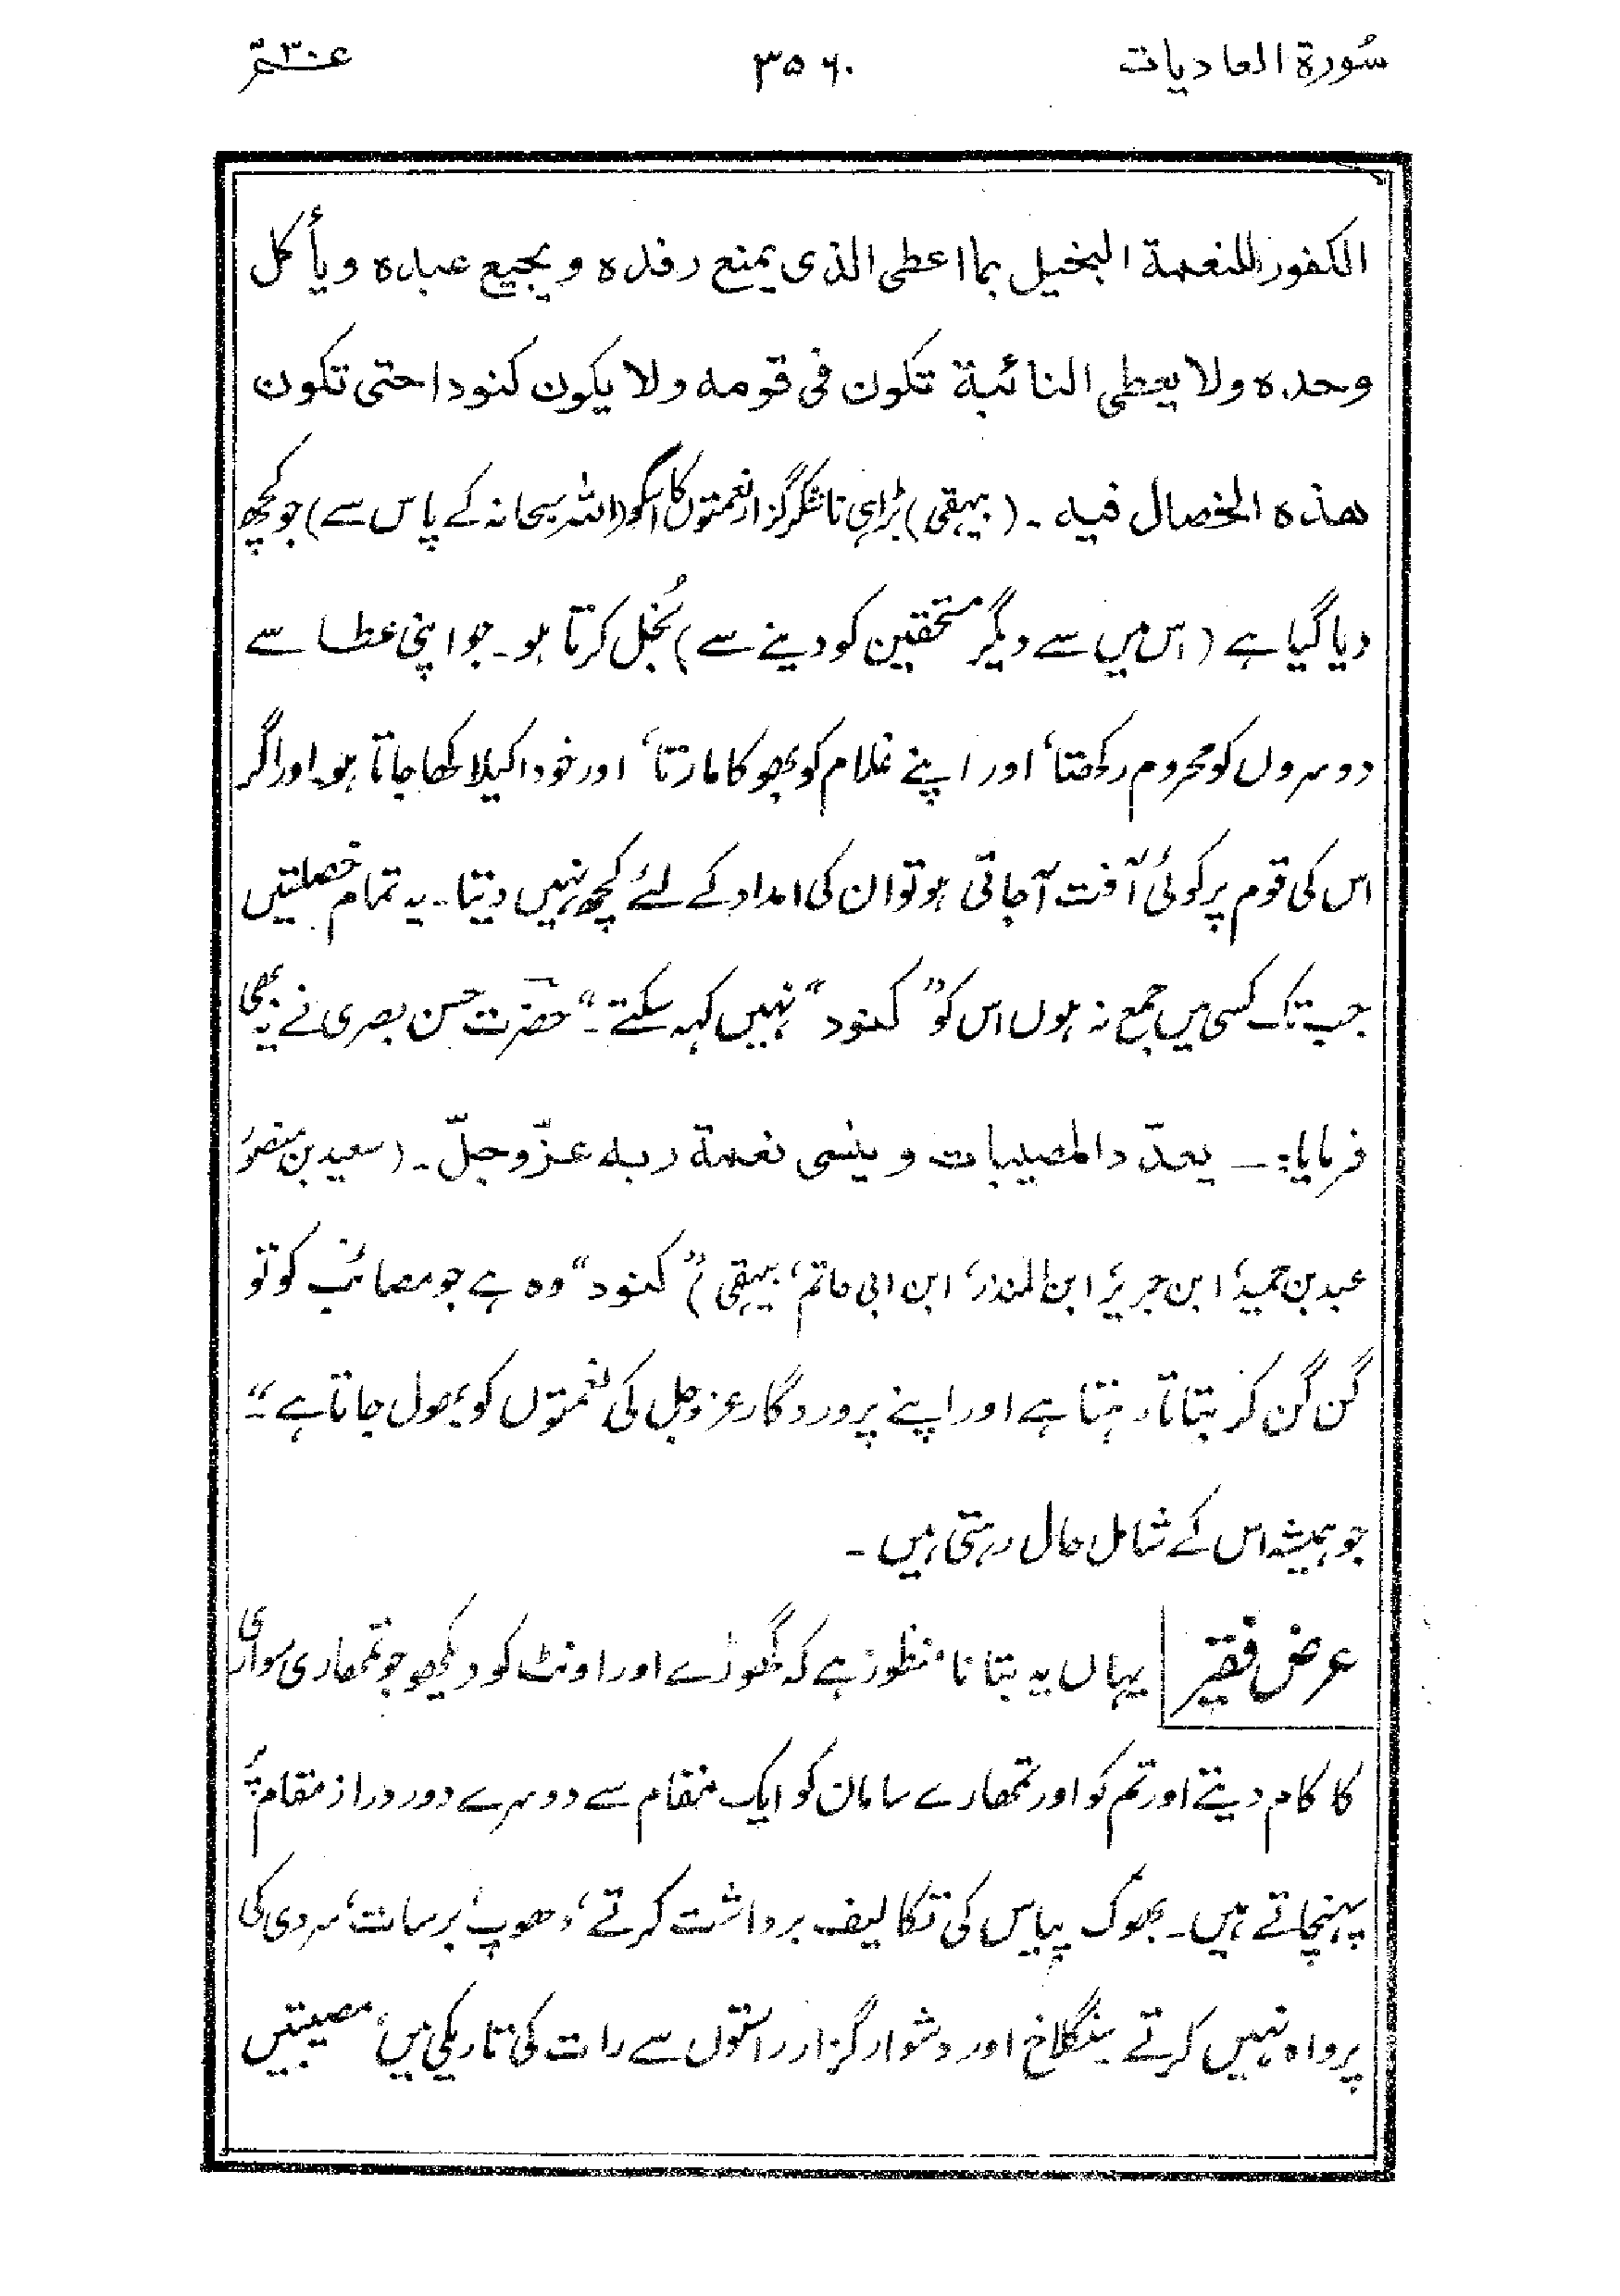 سُورة العاديات ۳۵۶۰ عمّ ۳۰
الكفور للنعمة البخيل بما اعطى الذى يمنع رفده ويجيع عبده ويأكل
وحده ولا يعطى النائبة تكون فى قومه ولا يكون كنودا حتى تكون
هذه الخصال فيه ۔ (بیہقی) بڑا ہی ناشکر گزار نعمتوں کا اسکو (اللہ سبحانہ کے پاس سے) جو کچھ
دیا گیا ہے (اس میں سے دیگر مستحقین کو دینے سے) بُخل کرتا ہو۔ جو اپنی عطا سے
دوسروں کو محروم رکھتا، اور اپنے غلام کو بھوکا مارتا، اور خود اکیلا کھا جاتا ہو۔ اور اگر
اس کی قوم پر کوئی آفت آجاتی ہو تو ان کی امداد کے لئے کچھ نہیں دیتا۔ یہ تمام خصلتیں
جب تک کسی میں جمع نہ ہوں اس کو ”کنود“ نہیں کہہ سکتے۔“ حضرت حسن بصری نے یہ بھی
فرمایا:۔ يعدّد المصيبات وينسى نعمة ربه عزّ وجلّ ۔ (سعید بن منصور،
عبد بن حمید، ابن جریر، ابن المنذر، ابن ابی حاتم، بیہقی) ”کنود“ وہ ہے جو مصائب کو تو
گن گن کر بتاتا رہتا ہے اور اپنے پروردگار عزوجل کی نعمتوں کو بھول جاتا ہے۔“
جو ہمیشہ اس کے شامل حال رہتی ہیں۔
عرض فقیر یہاں یہ بتانا منظور ہے کہ گھوڑے اور اونٹ کو دیکھو جو تمھاری سواری
کا کام دیتے اور تم کو اور تمھارے سامان کو ایک مقام سے دوسرے دور دراز مقام پر
پہنچاتے ہیں۔ بھوک پیاس کی تکالیف برداشت کرتے، دھوپ، برسات، سردی کی
پرواہ نہیں کرتے سنگلاخ اور دشوار گزار راستوں سے رات کی تاریکی میں، مصیبتیں